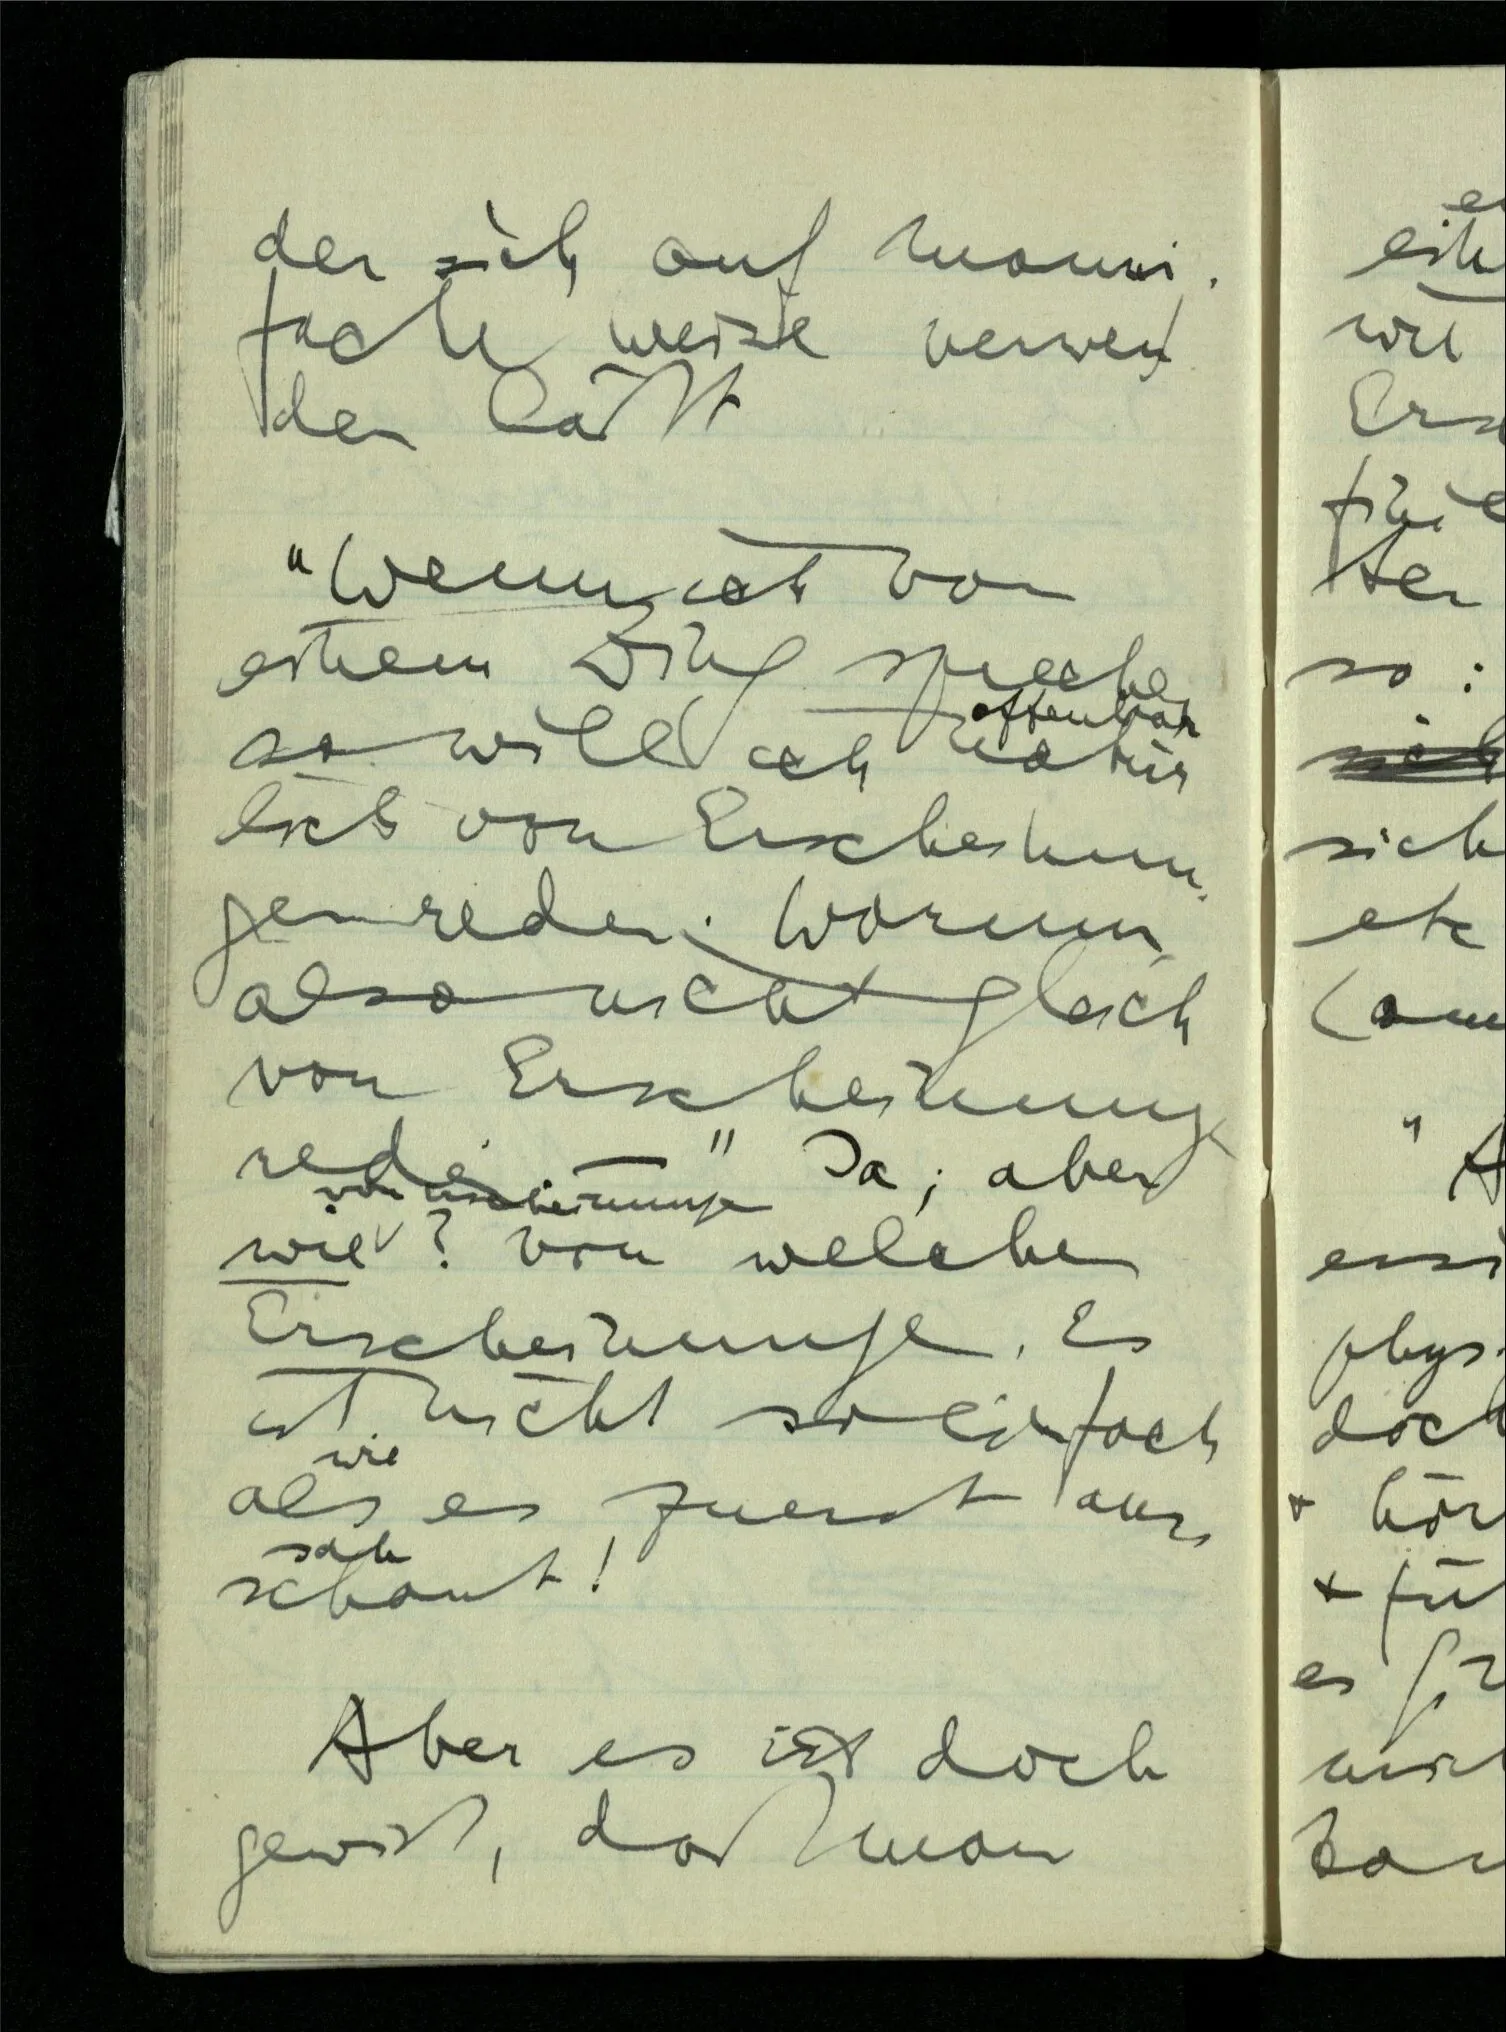 der sich auf manni-
fache weise verwen
den läßt
"Wenn ich von
einem Ding spreche
offenbar
so will ich natür
lich von Erscheinun-
gen reden. Warum
also nicht gleich
von Erscheinunge
rede." Ja; aber
von Erscheinunge
wie? von welchen
Erscheinunge. Es
ist nicht so einfach
wie
als es zuerst aus
sah
schaut!
Aber es ist doch
gewiß, daß man
ein
wie
so:
sich
etc
phys.
doch
+ hör
+ fü
es